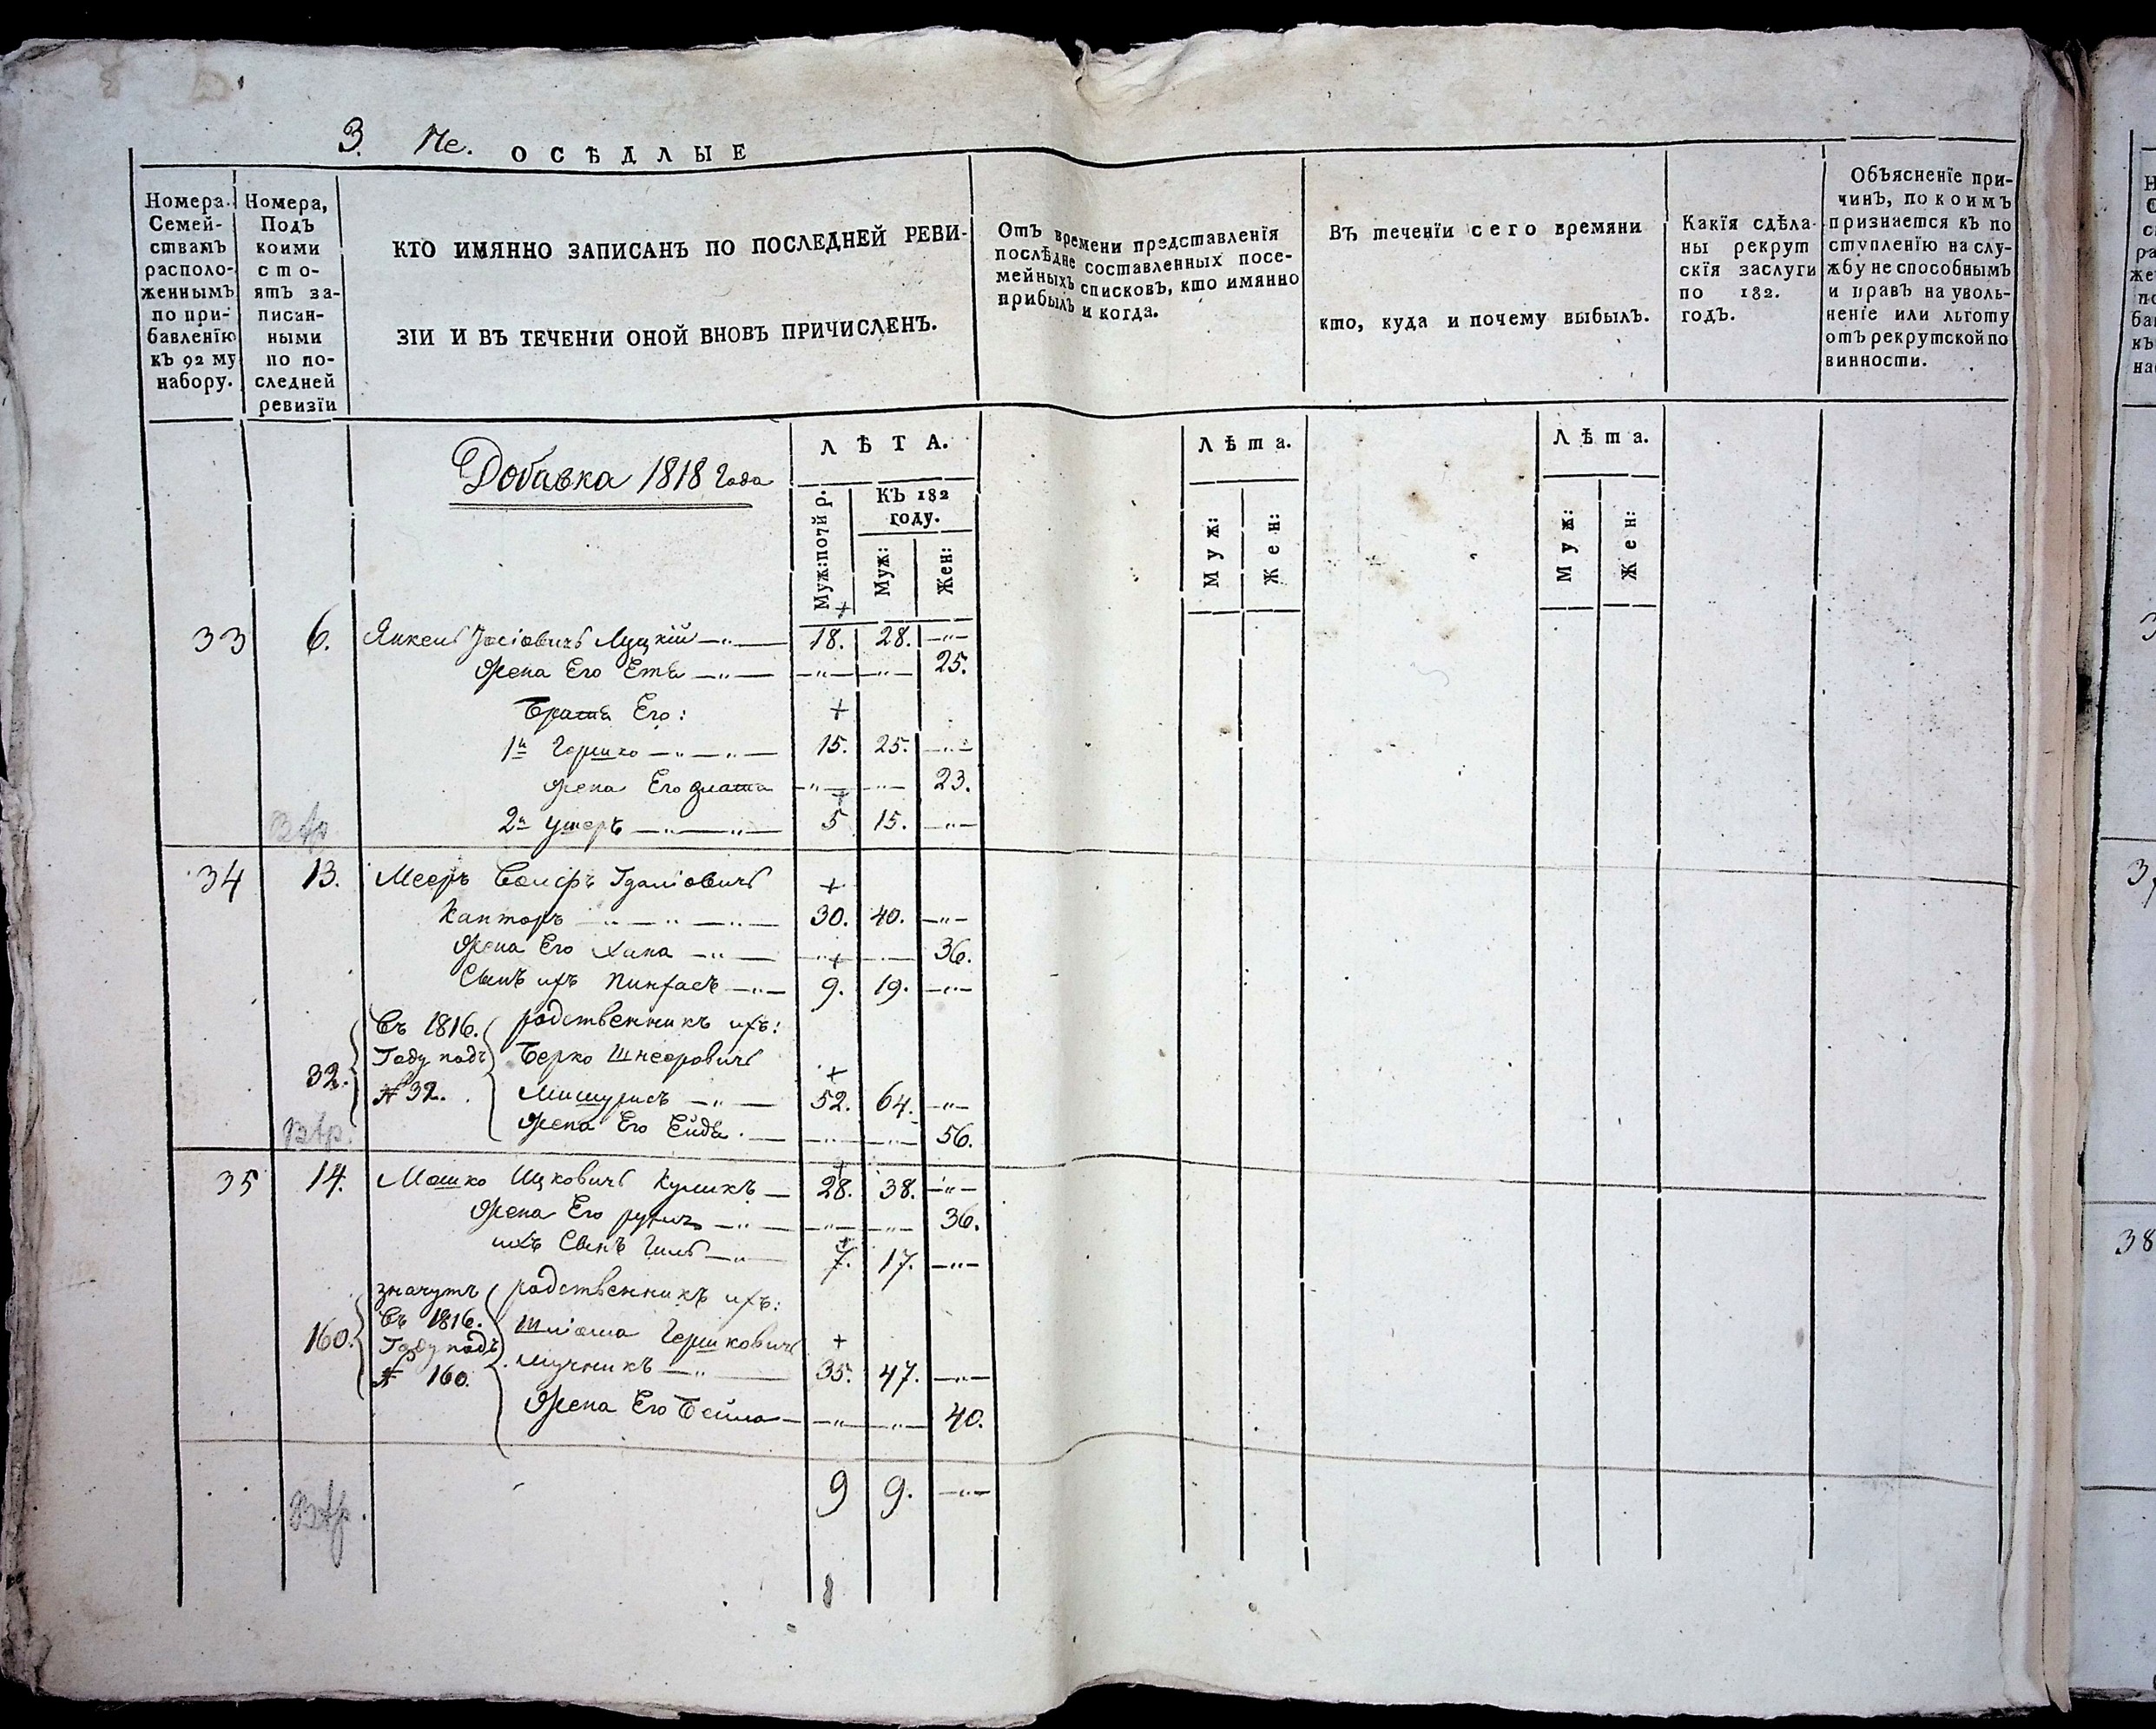 3. Не. ОСѢДЛЫЕ
Номера Семей-
ствамъ
располо-
женнымъ
по при-
бавленію
къ 92 му
набору.
Номера,
Подъ
коими
сто-
ятъ за-
писан-
ными
по по-
следней
ревизїи
КТО ИМЯННО ЗАПИСАНЪ ПО ПОСЛЕДНЕЙ РЕВИ-
ЗІИ И ВЪ ТЕЧЕНІИ ОНОЙ ВНОВЬ ПРИЧИСЛЕНЪ.
Отъ времени представленїя
послѣдне составленныхъ посе-
мейныхъ списковъ, кто имянно
прибылъ и когда.
Въ теченїи сего времяни
кто, куда и почему выбылъ.
Какїя сдѣла-
ны рекрут
скїя заслуги
по 182.
годъ.
Объясненїе при-
чинъ, по коимъ
признается къ по
ступленїю на слу-
жбу не способнымъ
и правъ на уволь-
ненїе или льготу
отъ рекрутской по
винности.
Добавка 1818 года
ЛѢТА.
Муж: по 7й р.
КЪ 182
году.
Муж:
Жен:
Лѣта.
Муж:
Жен:
Лѣта.
Муж:
Жен:
33 6. Янкель Іосіовичь Луцкій —"— 18. 28. —"—
Жена Его Етя —"— —"— —"— 25.
Братя Его:
1й Гершко —"—"— 15. 25. —"—
Жена Его Злата —"— —"— 23.
2й Ушеръ —"—"— 5 15. —"—
34 13. Мееръ Іданіовичь
Канторъ —"—"— 30. 40. —"—
Жена Его Хана —"— —"— —"— 36.
Сынъ ихъ Пинхасъ —"— 9. 19. —"—
32. Въ 1816. Году подъ № 32. родственникъ ихъ:
Берко Шнееровичь
Мишурисъ —"— 52. 64. —"—
Жена Его Ейдя —"— —"— 56.
35 14. Мошко Ицковичь Куликъ — 28. 38. —"—
Жена Его —"— —"— —"— 36.
ихъ Сынъ Гиль —"— 7. 17. —"—
160. значутъ Въ 1816. Году подъ № 160. родственникъ ихъ:
Шліома Гершковичь
Мучникъ —"— 35. 47. —"—
Жена Его Бейла — —"— —"— 40.
9 9. —"—